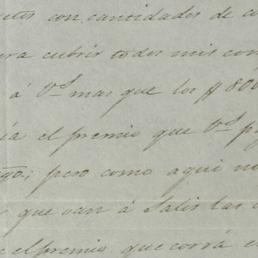 con cantidades de
cubrir todos mis
á Vs mas que los $ 800
el premio que Vs
pero como aqui
que van á salir las
el premio que corrá